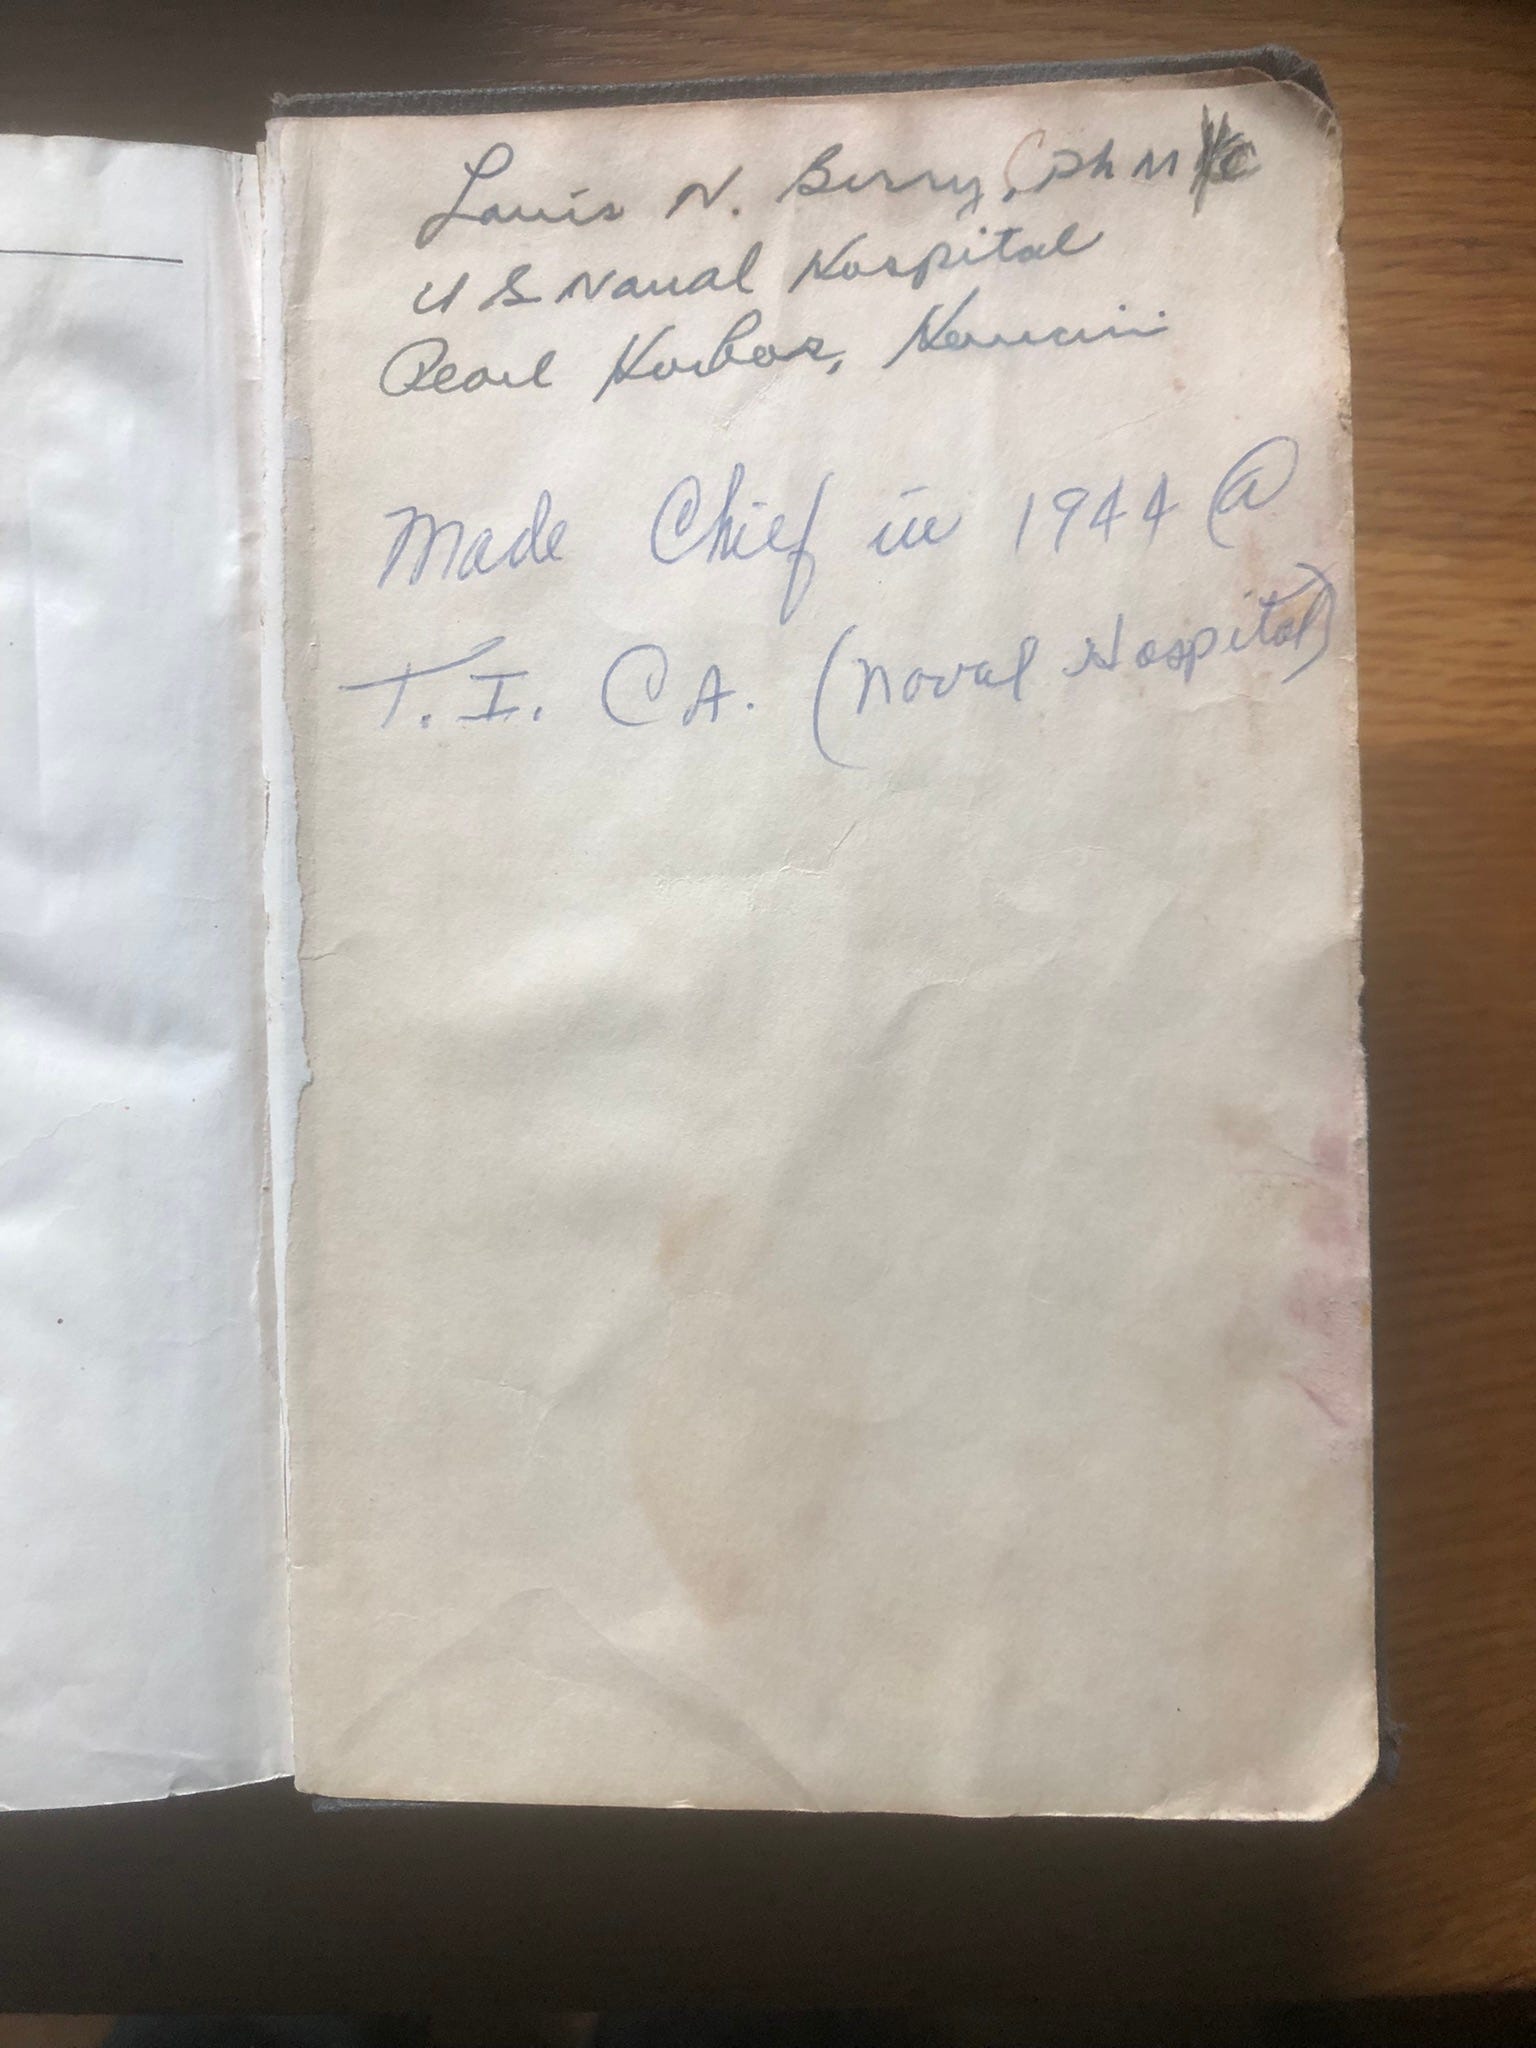 Louis N. Berry, Ph M
U S Naval Hospital
Pearl Harbor, Hawaii
Made Chief in 1944 @
T.I. CA. (Naval Hospital)